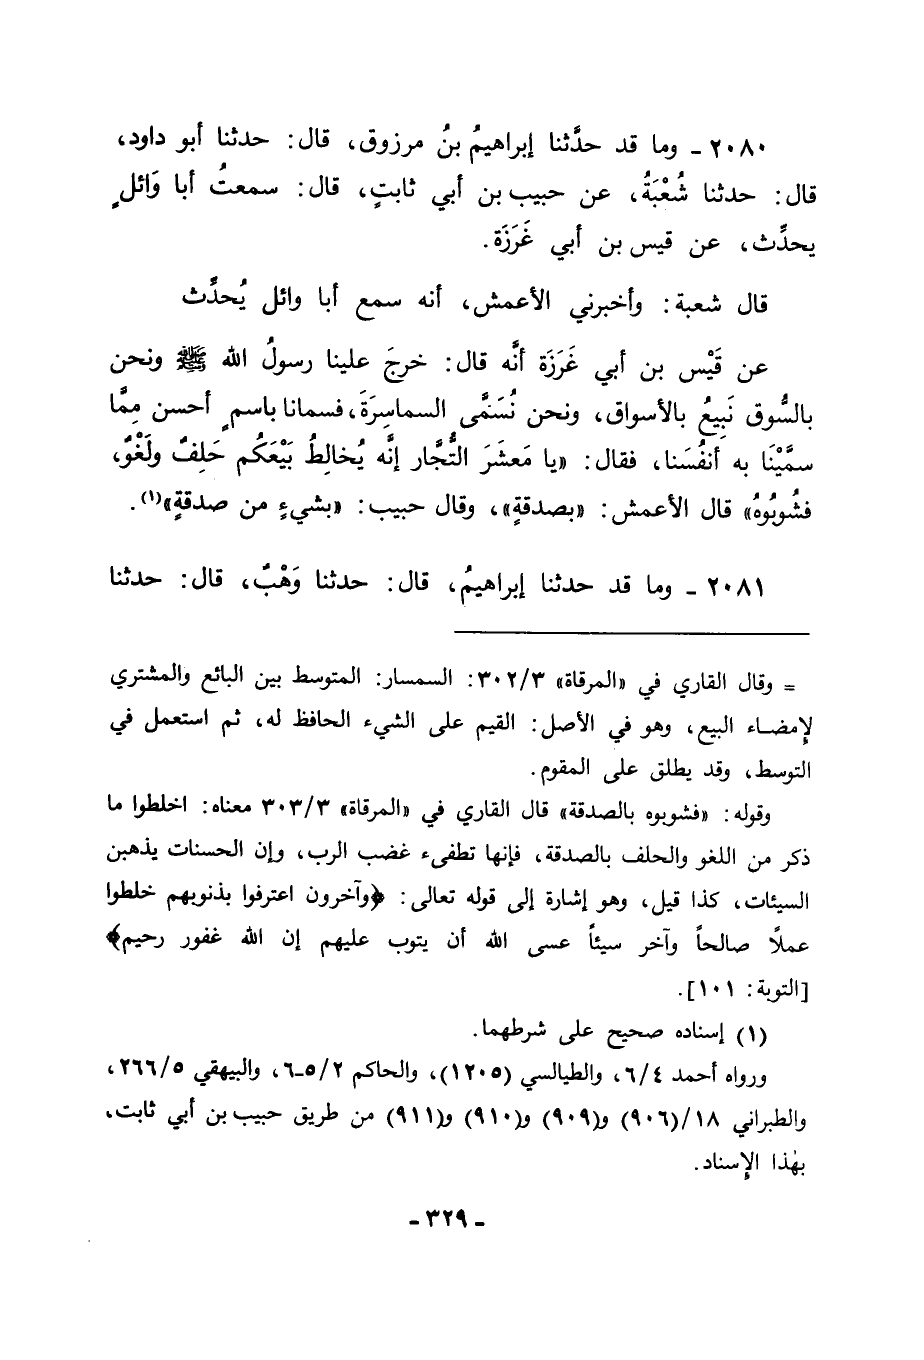 ٢٠٨٠ ـ وما قد حدَّثنا إبراهيمُ بنُ مرزوق، قال: حدثنا أبو داود،
قال: حدثنا شُعْبَةُ، عن حبيب بن أبي ثابتٍ، قال: سمعتُ أبا وَائلٍ
يحدِّث، عن قيس بن أبي غَرَزَة.
قال شعبة: وأخبرني الأعمش، أنه سمع أبا وائل يُحدِّث
عن قَيْس بن أبي غَرَزَة أنَّه قال: خرجَ علينا رسولُ الله ﷺ ونحن
بالسُّوق نَبِيعُ بالأسواق، ونحن نُسَمَّى السماسِرَةَ، فسمانا باسمٍ أحسن مِمَّا
سمَّيْنَا به أنفُسَنا، فقال: «يا مَعشَرَ التُّجَّار إنَّه يُخالِطُ بَيْعَكُم حَلِفٌ ولَغْوٌ،
فشُوبُوهُ» قال الأعمش: «بصدقةٍ»، وقال حبيب: «بشيءٍ من صدقةٍ»(١).
٢٠٨١ ـ وما قد حدثنا إبراهيمُ، قال: حدثنا وَهْبٌ، قال: حدثنا
= وقال القاري في «المرقاة» ٣٠٢/٣: السمسار: المتوسط بين البائع والمشتري
لإِمضاء البيع، وهو في الأصل: القيم على الشيء الحافظ له، ثم استعمل في
التوسط، وقد يطلق على المقوم.
وقوله: «فشوبوه بالصدقة» قال القاري في «المرقاة» ٣٠٣/٣ معناه: اخلطوا ما
ذكر من اللغو والحلف بالصدقة، فإنها تطفىء غضب الرب، وإن الحسنات يذهبن
السيئات، كذا قيل، وهو إشارة إلى قوله تعالى: ﴿وآخرون اعترفوا بذنوبهم خلطوا
عملًا صالحاً وآخر سيئاً عسى الله أن يتوب عليهم إن الله غفور رحيم﴾
[التوبة: ١٠١].
(١) إسناده صحيح على شرطهما.
ورواه أحمد ٦/٤، والطيالسي (١٢٠٥)، والحاكم ٥/٢ـ٦، والبيهقي ٢٦٦/٥،
والطبراني ١٨/(٩٠٦) و(٩٠٩) و(٩١٠) و(٩١١) من طريق حبيب بن أبي ثابت،
بهٰذا الإِسناد.
ـ ٣٢٩ ـ